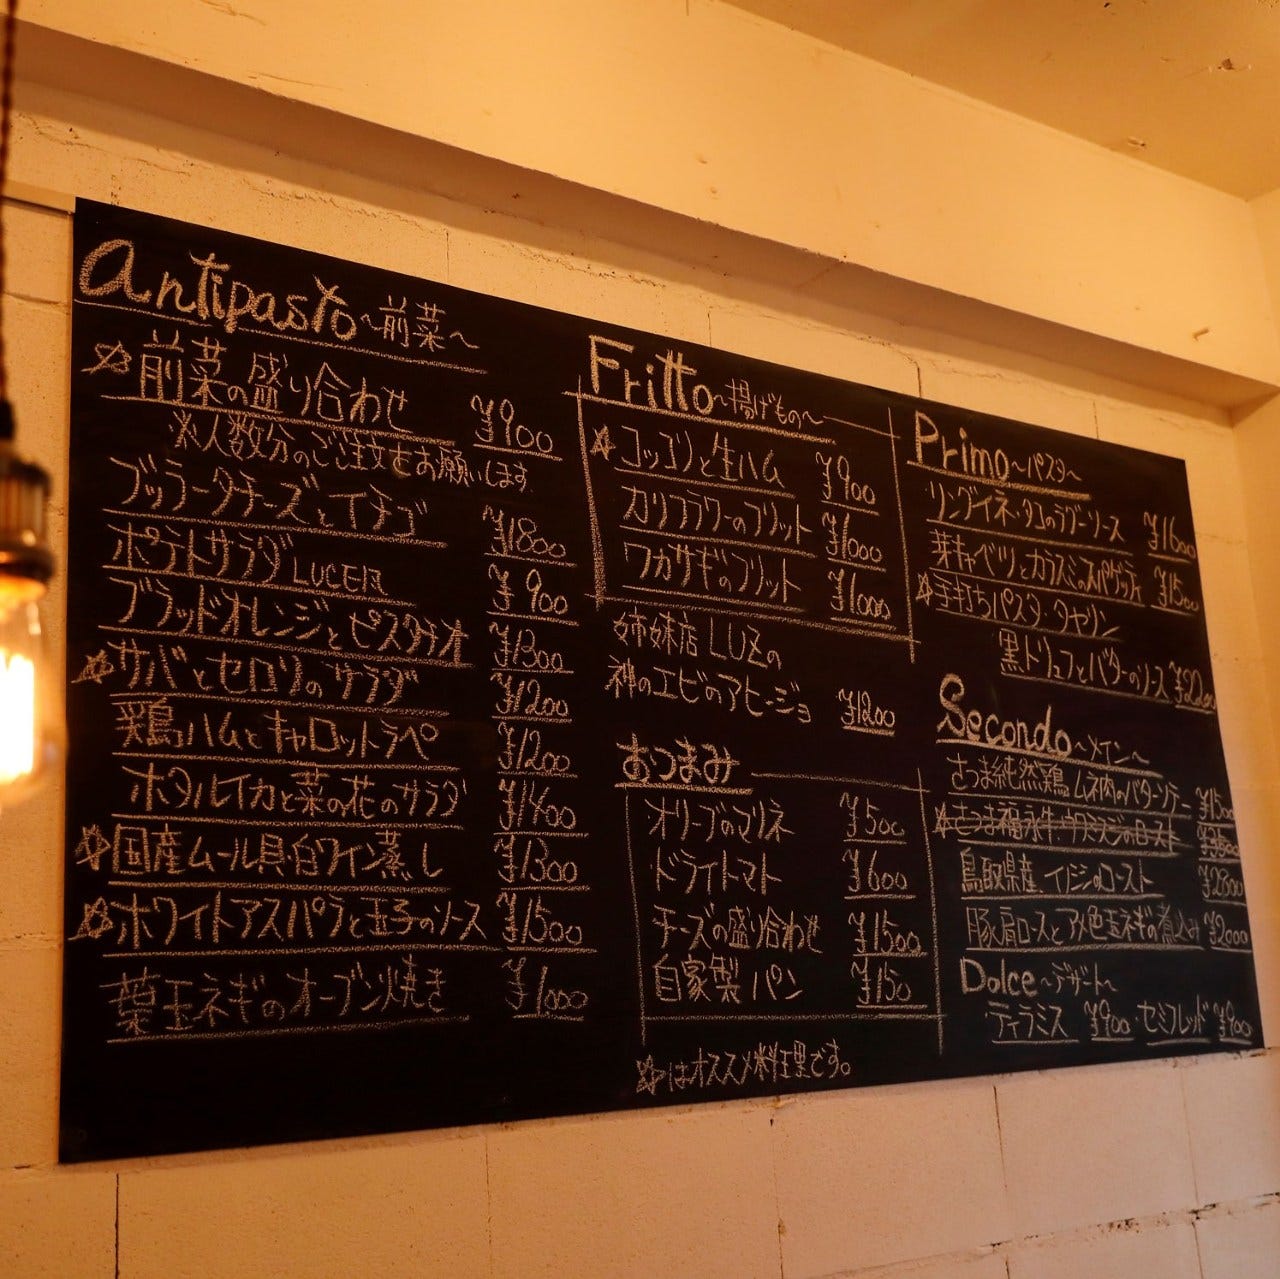 Antipasto ~前菜~
☆前菜の盛り合わせ ¥900
※人数分のご注文をお願いします
ブッラータチーズとイチゴ ¥1800
ポテトサラダ LUCERA ¥900
ブラッドオレンジとピスタチオ ¥1300
☆サバとセロリのサラダ ¥1200
鶏ハムとキャロットラペ ¥1200
ホタルイカと菜の花のサラダ ¥1400
☆国産ムール貝・白ワイン蒸し ¥1300
☆ホワイトアスパラと玉子のソース ¥1500
葉玉ネギのオーブン焼き ¥1000
Fritto ~揚げもの~
☆コッコリと生ハム ¥900
カリフラワーのフリット ¥1000
ワカサギのフリット ¥1000
姉妹店 LUZの
神のエビのアヒージョ ¥1200
おつまみ
オリーブのマリネ ¥500
ドライトマト ¥600
チーズの盛り合わせ ¥1500
自家製パン ¥150
☆はオススメ料理です。
Primo ~パスタ~
リングイネ・タコのラグーソース ¥1600
芽キャベツとカラスミのスパゲッティ ¥1500
☆手打ちパスタ・タヤリン
黒トリュフとバターのソース ¥2200
Secondo ~メイン~
さつま純然鶏 ムネ肉のバターソテー ¥1500
☆さつま福永牛・のロースト ¥3500
鳥取県産 イノシシのロースト ¥2800
豚肩ロースとアメ色玉ネギの煮込み ¥2000
Dolce ~デザート~
ティラミス ¥900 ・セミフレッド ¥900